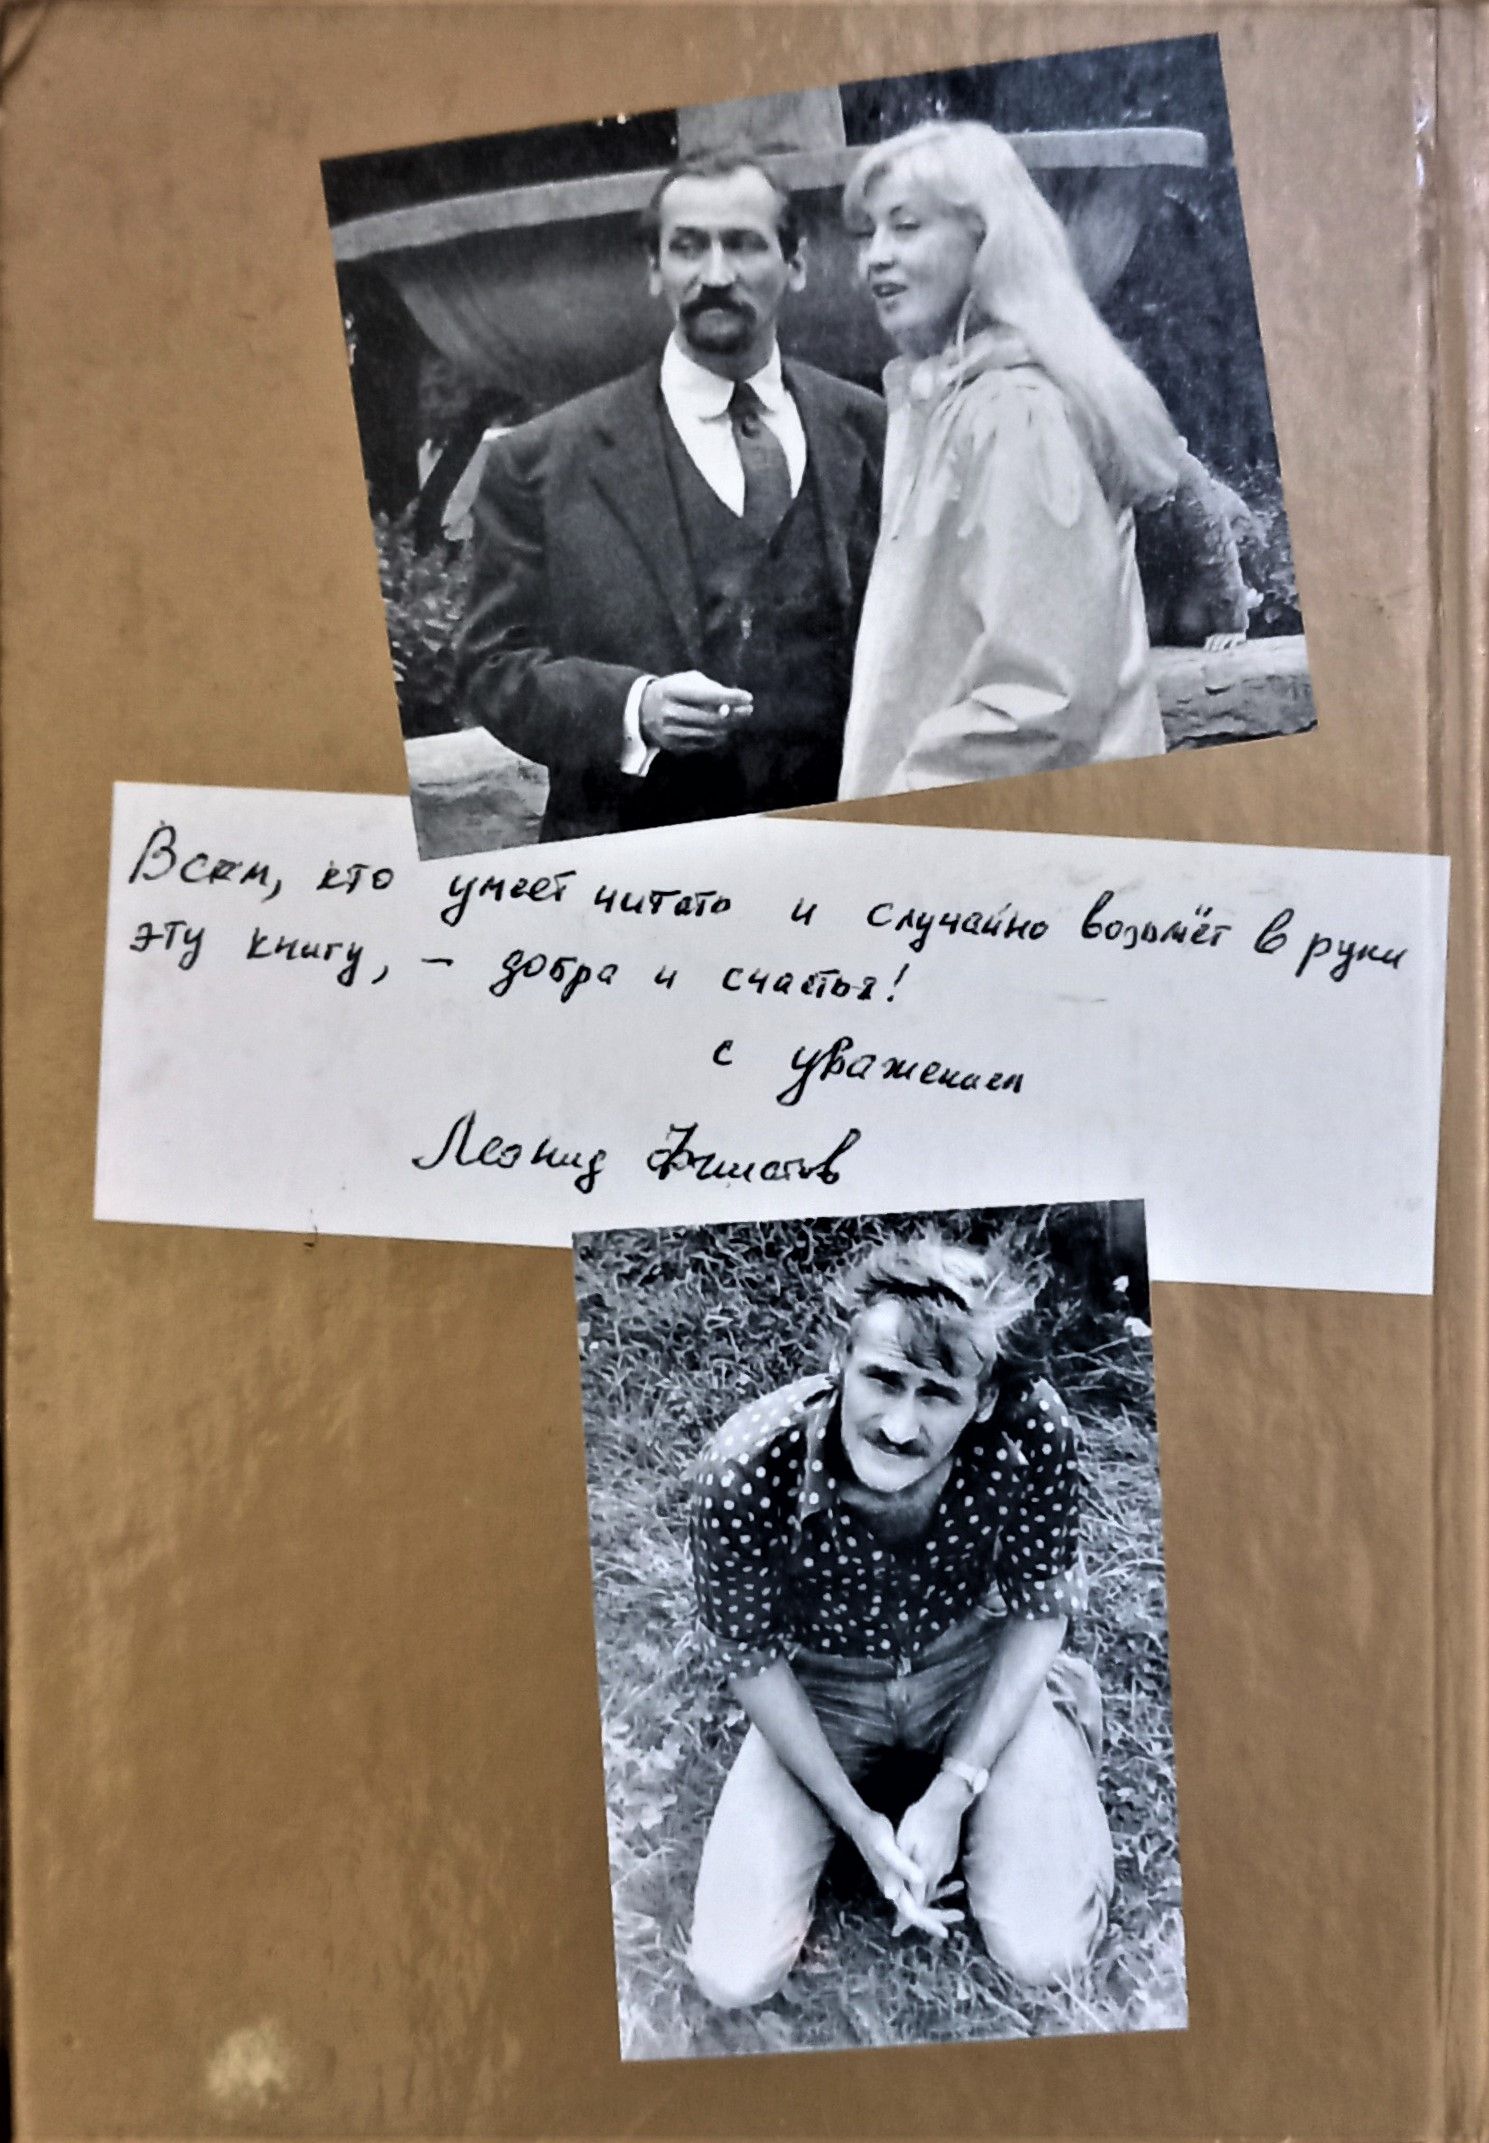 Всем, кто умеет читать и случайно возьмёт в руки
эту книгу, – добра и счастья!
с уважением
Леонид Филатов